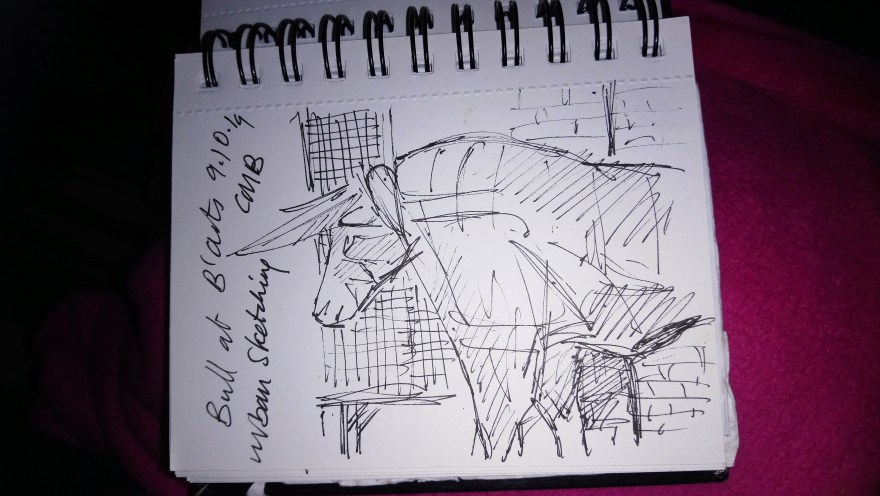 Bull at B'arts 9.10.19
urban sketching CMB